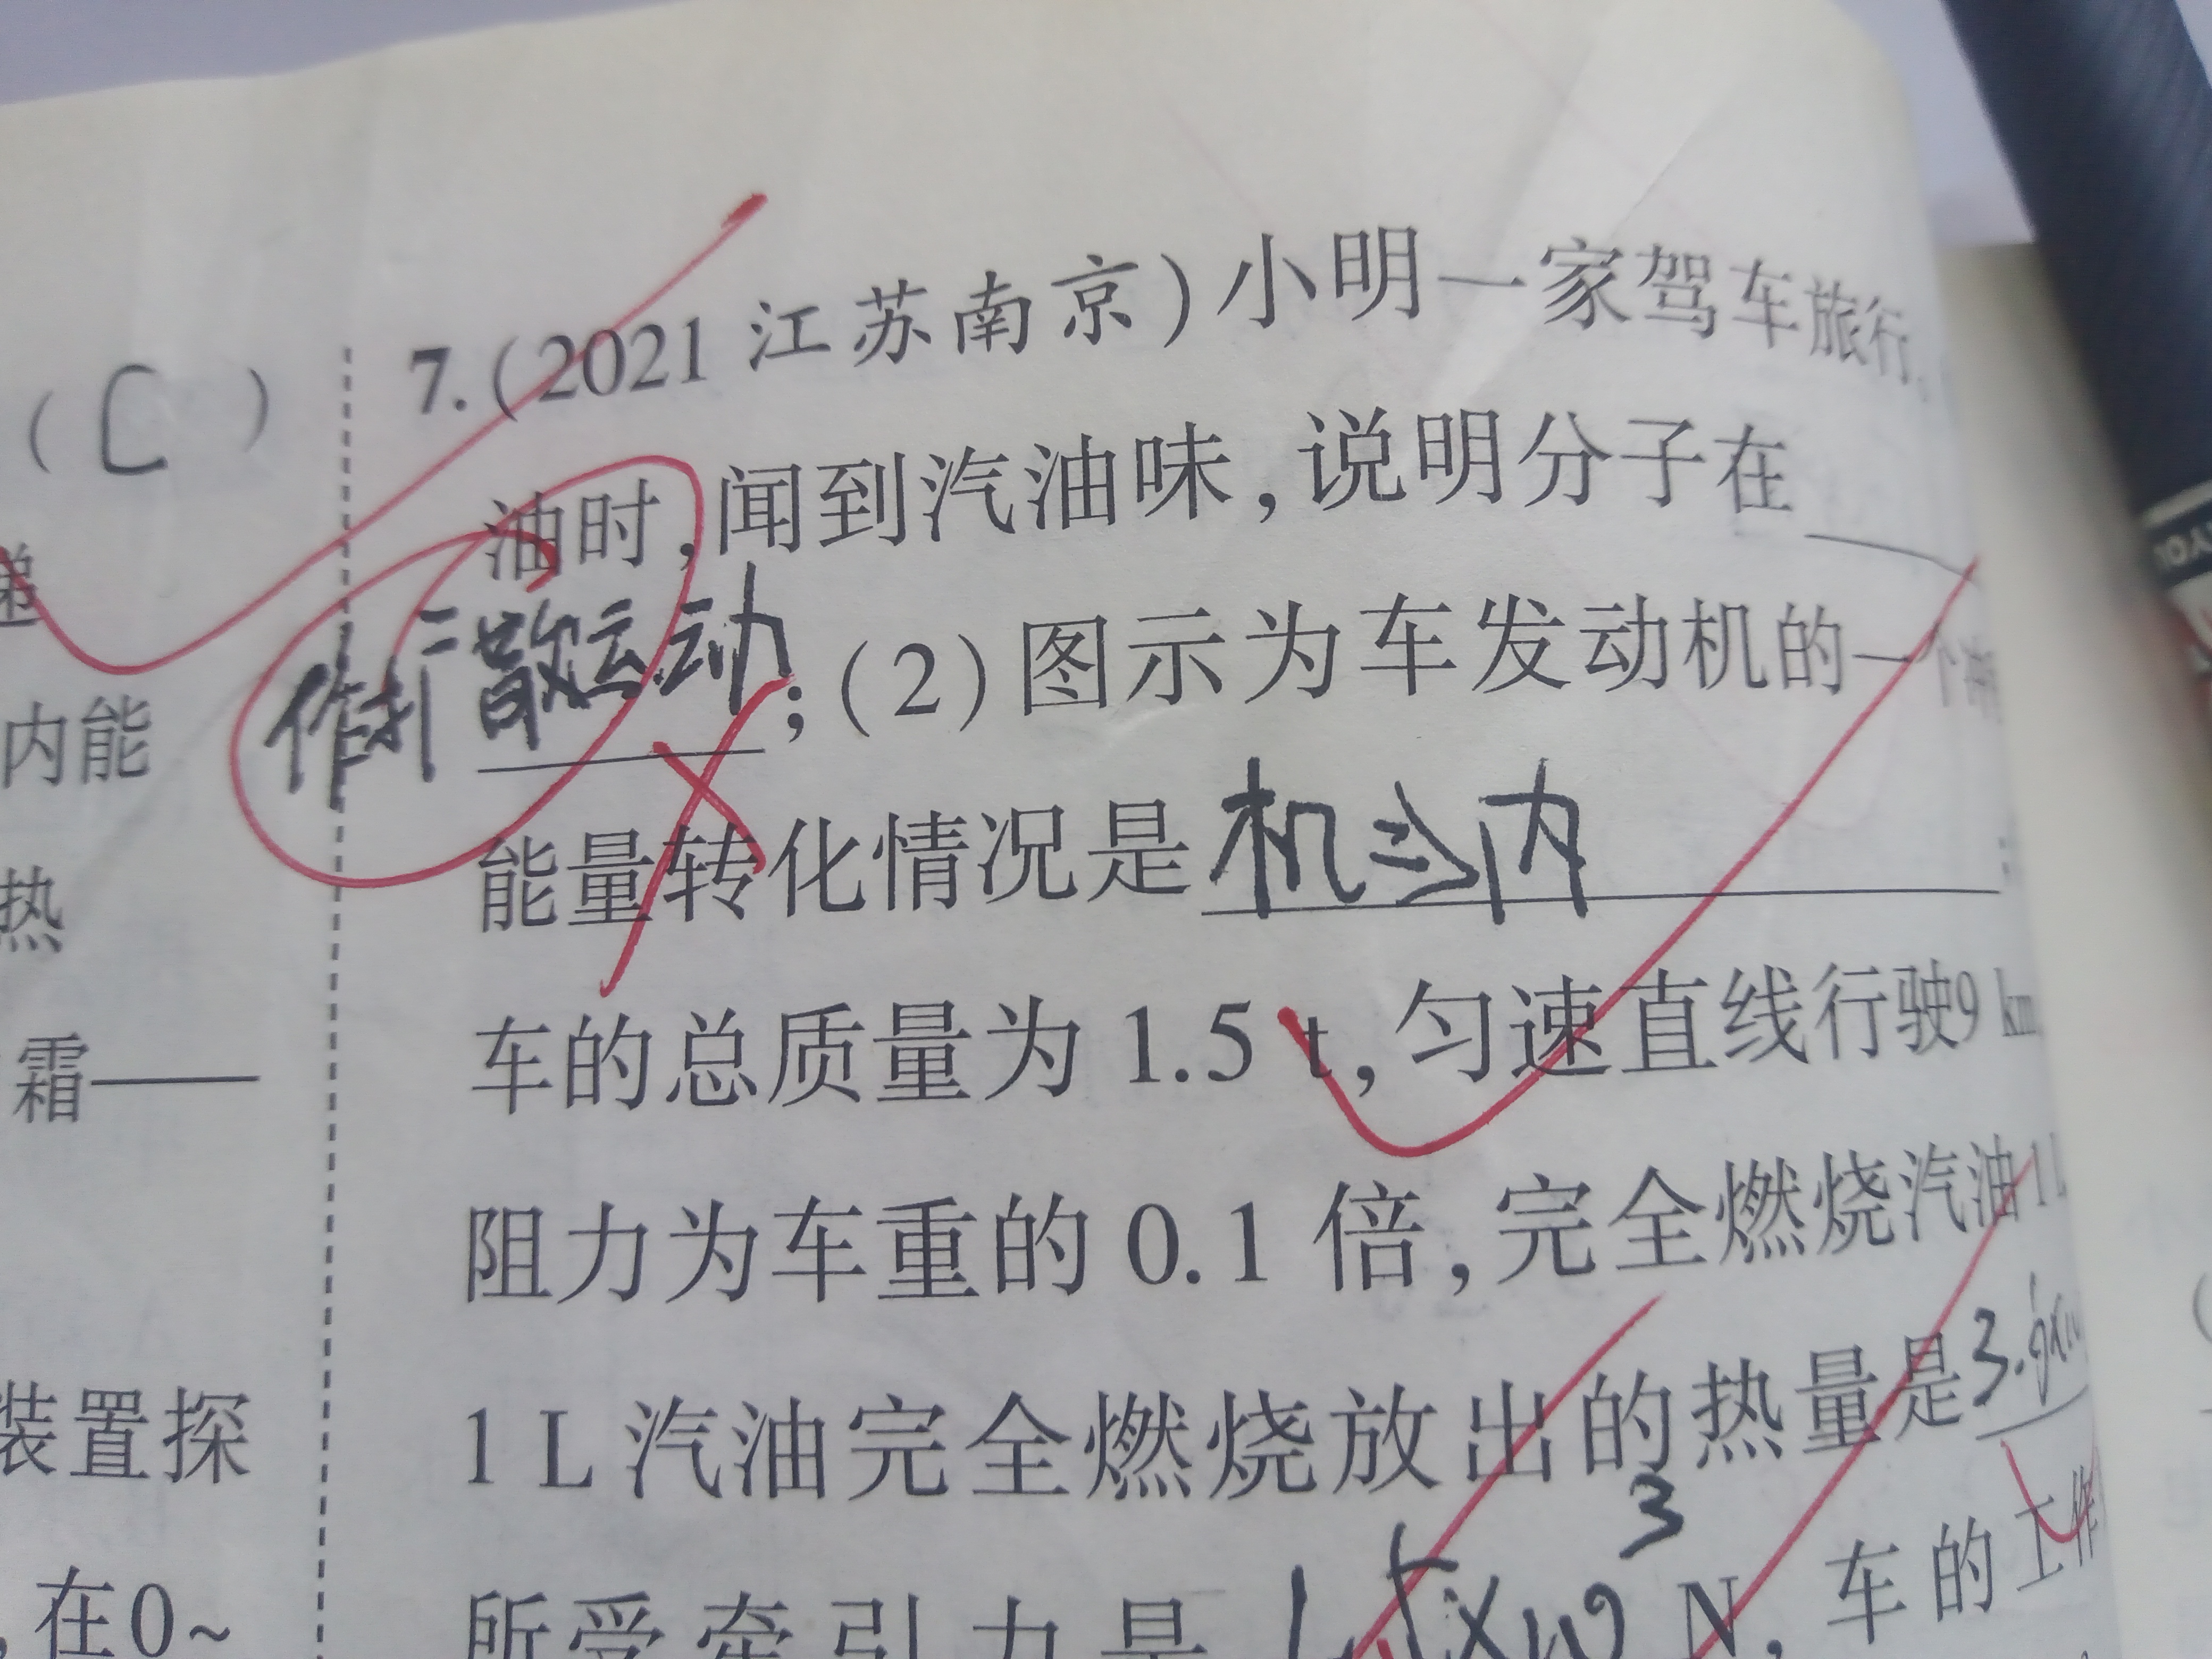 (C)
递
内能
热
霜——
装置探
,在0~
7.(2021 江苏南京)小明一家驾车旅行,
油时,闻到汽油味,说明分子在
作扩散运动;(2)图示为车发动机的一个
能量转化情况是机⇒内;
车的总质量为 1.5 t,匀速直线行驶9 km
阻力为车重的 0.1 倍,完全燃烧汽油1L
1 L 汽油完全燃烧放出的热量是3.
所受牵引力是 1.5×10³ N,车的工作